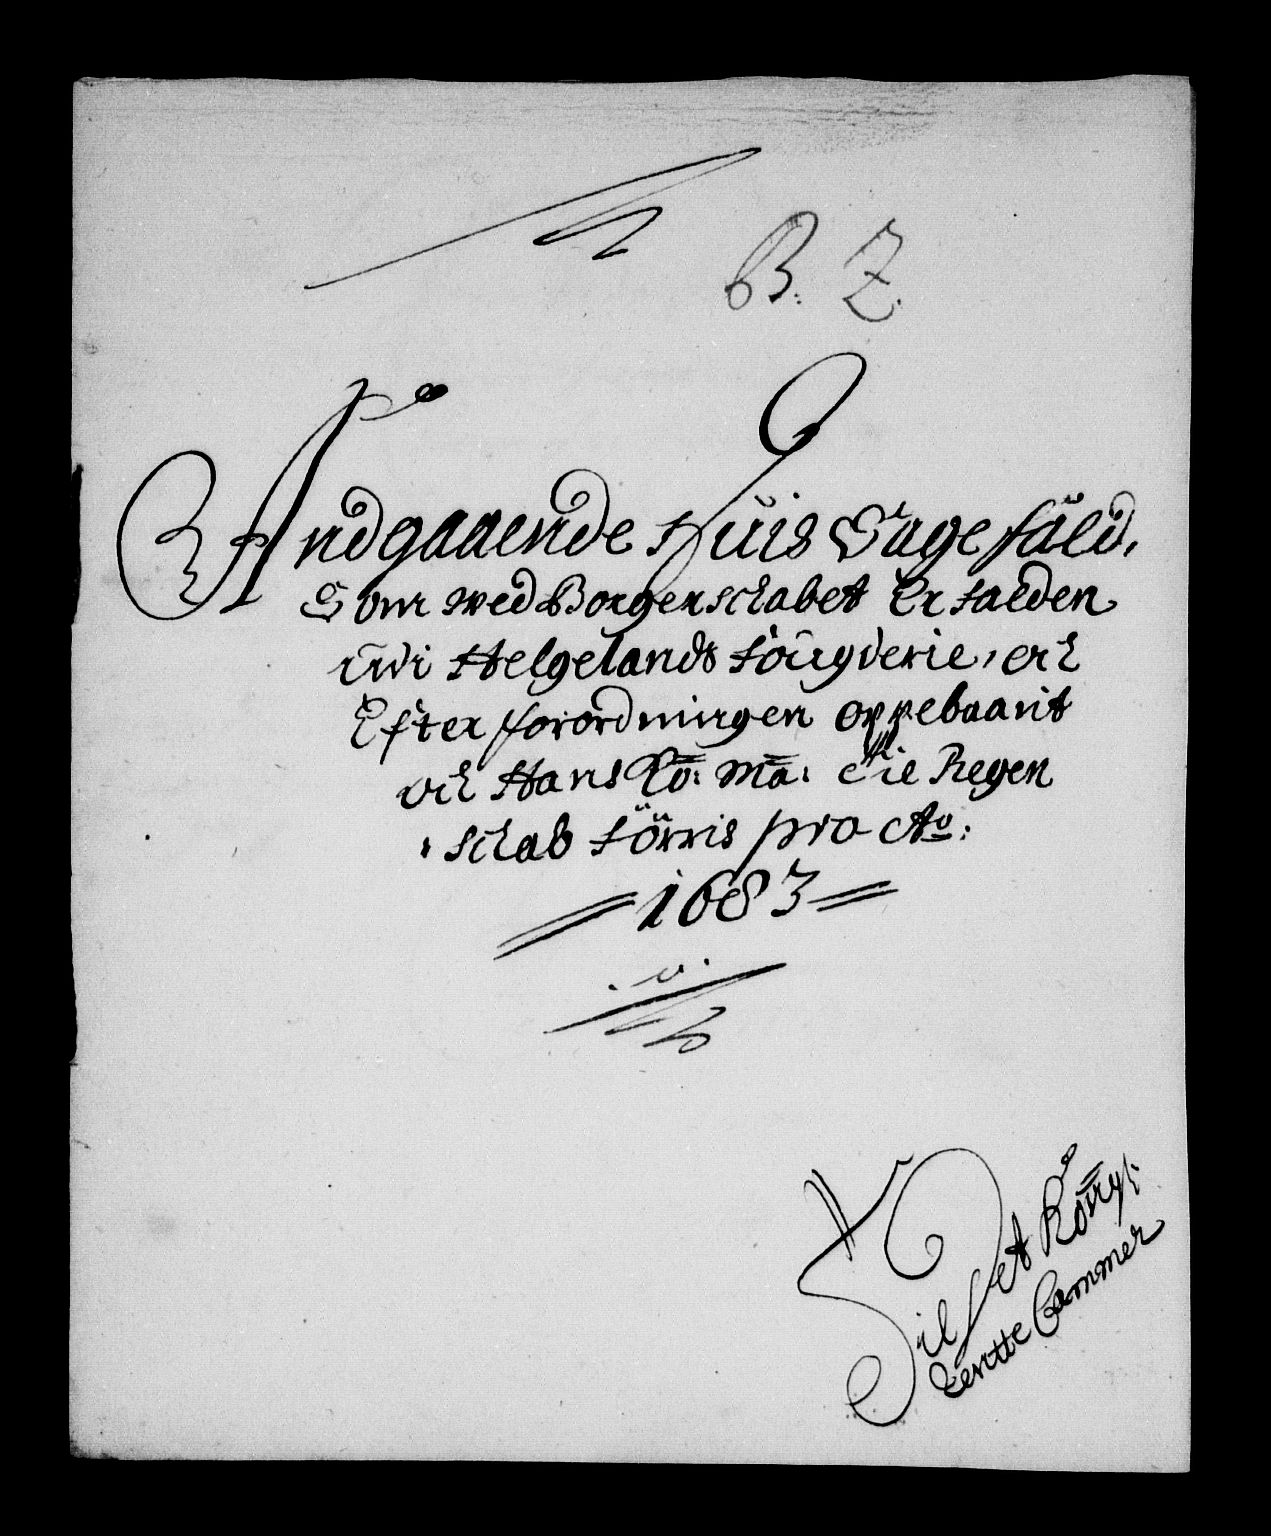 B: Z.
Andgaaende Huis Sagefald,
Som wed Borgerschabet Er falden
udi Helgelands fougderie, och
Efter forordningen oppebaarit
och Hans Ko: Ma: til Regen
schab förris pro Ao:
1683
Til Det Kongl:
Rentte Cammer